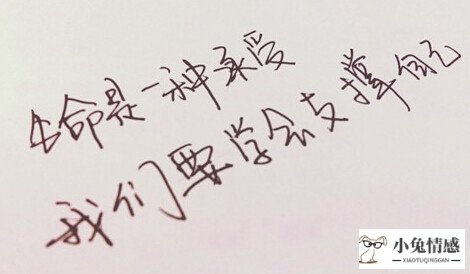 生命是一种承受
我们要学会支撑自己
小兔情感
XIAOTUQINGGAN